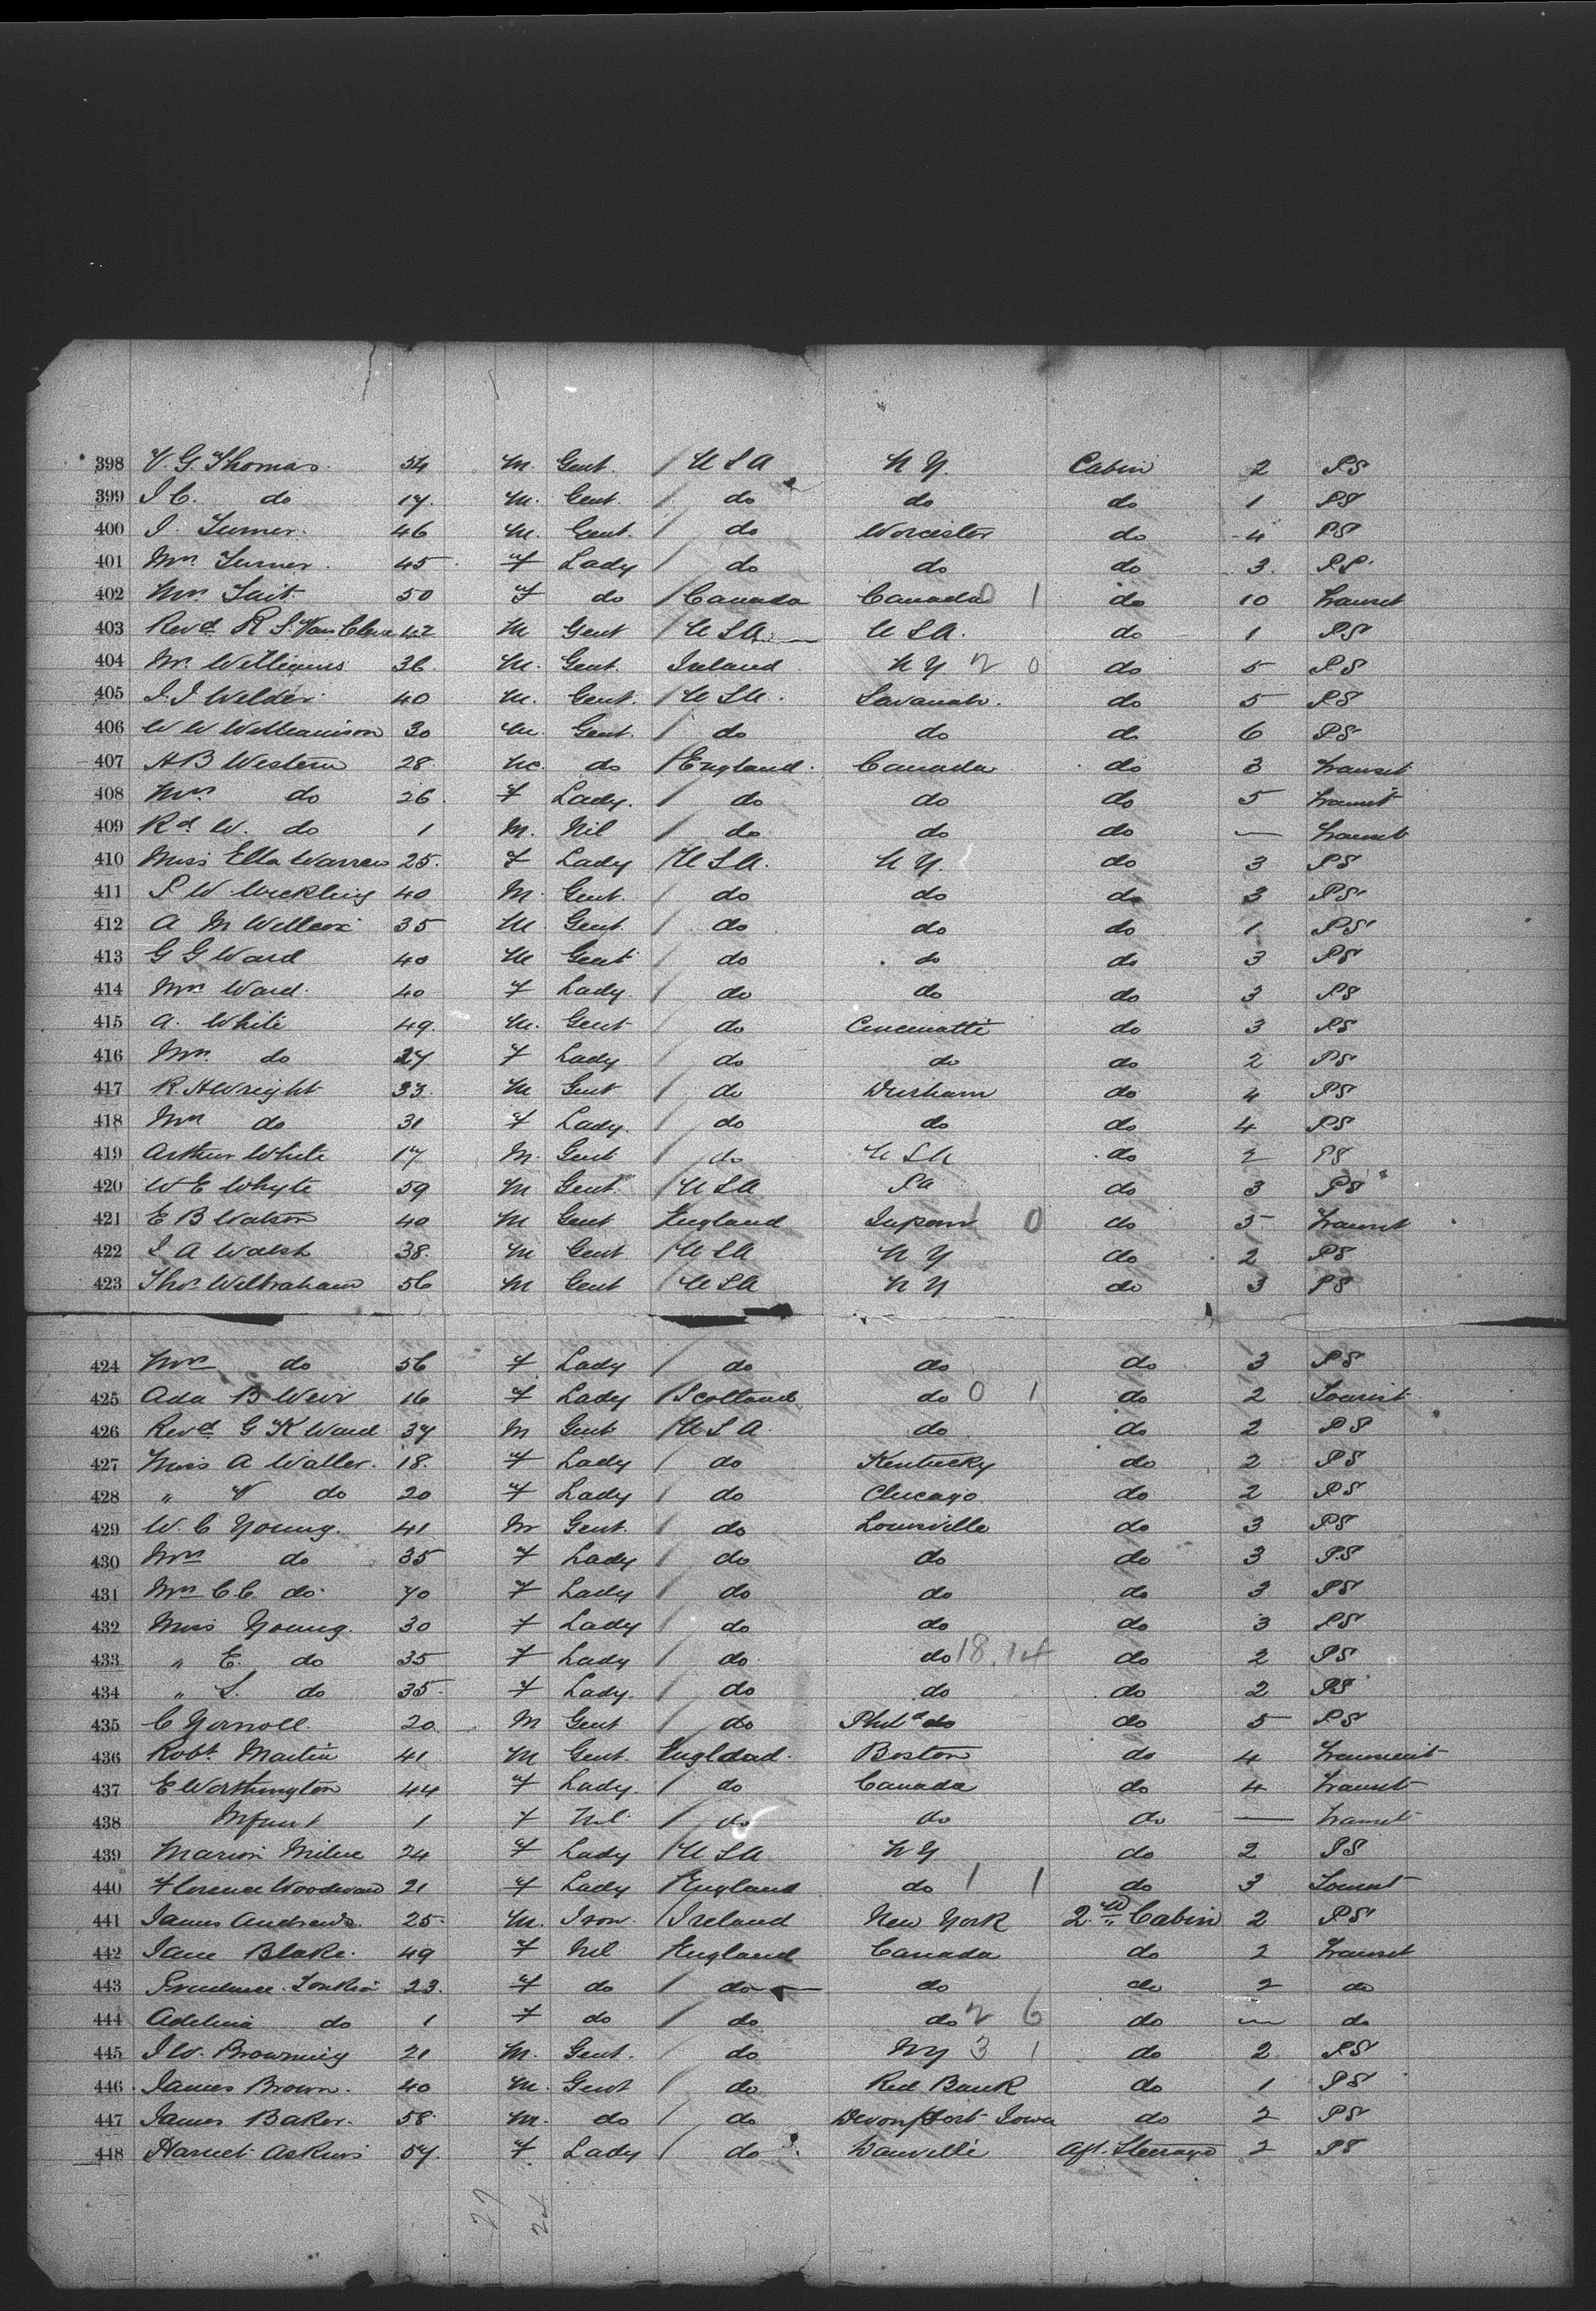 398 V. G. Thomas. 54 M. Gent. / U S A N Y. Cabin 2 PS
399 I C. do 17. M. Gent / do do do 1 PS
400 I. Turner. 46 M. Gent. / do Worcester do 4 PS
401 Mrs Turner. 45 F Lady / do do do 3. PS.
402 Mrs Tait. 50 F do / Canada Canada 0 1 do 10 Transit
403 Revd R S. Van Cleve 42 M Gent / U S A. U S A. do 1 PS
404 Mr. Williams 36. M. Gent. Ireland N Y. 2 0 do 5 PS
405 J. J Welder 40 M. Gent. / U S A. Savanah. do 5 PS
406 W W Williamson 30 M. Gent. / do do do 6 PS
407 A B Western 28 M. do / England. Canada do 3 Transit
408 Mrs. do 26. F Lady. / do do do 5 Transit
409 Rd W. do 1 M. Nil / do do do — Transit
410 Miss Ella Warren 25. F Lady / U S A. N Y. do 3 PS
411 S W Weckling 40 M. Gent. / do do do 3 PS
412 A M Willcox 35 M Gent. / do do do 1 PS
413 G G Ward 40 M Gent / do do do 3 PS
414 Mrs Ward. 40 F Lady. / do do do 3 PS
415 A. White 49. M. Gent / do Cincinatti do 3 PS
416 Mrs. do 27 F Lady / do do do 2 PS
417 R. H Wright 33. M Gent / do Durham do 4 PS
418 Mrs do 31 F Lady. / do do do 4 PS
419 Arthur White 17 M. Gent / do U S A do 2 PS
420 W E Whyte 59 M Gent / U S A Pa do 3 PS
421 E B Watson 40 M Gent England Japan 1 0 do 5 Transit
422 J A Walsh 38. M Gent. / U S A N Y do 2 PS
423 Thos. Wilbraham 56 M Gent / U S A N Y do 3 PS
424 Mrs do 56 F Lady / do do do 3 PS
425 Ada B Weir 16 F Lady / Scotland do 0 1 do 2 Tourist
426 Revd G K Ward 37 M Gent / U S A. do do 2 PS
427 Miss A Waller. 18. F Lady / do Kentucky do 2 PS
428 " V do 20 F Lady / do Chicago. do 2 PS
429 W. C Young. 41 M Gent. / do Louisville do 3 PS
430 Mrs do 35 F Lady / do do do 3 PS
431 Mrs C. C. do 70 F Lady / do do do 3 PS
432 Miss Young. 30 F Lady / do do do 3 PS
433 " E. do 35 F Lady / do do 18. 14 do 2 PS
434 " S. do 35. F Lady. / do do do 2 PS
435 C Yornoll. 20. M Gent / do Phila do do 5 PS
436 Robt. Martin 41 M Gent. Engldad. Boston do 4 Transient
437 E Worthington 44 F Lady. / do Canada do 4 Transit
438 Infant 1 F Nil / do do do — Transit
439 Marion Milne 24 F Lady / U S A N Y do 2 PS
440 Florence Woodward 21 F Lady / England do 1 1 do 3 Tourist
441 James Andrews. 25. M. Iron. / Ireland New York 2nd Cabin 2 PS
442 Jane Blake. 49 F Nil England Canada do 2 Transit
443 Prudence Tonkin 23. F do / do do do 2 do
444 Adelina do 1 F do / do do 2 6 do — do
445 J W. Browning 21 M. Gent. / do N Y 3 1 do 2 PS
446 James Brown. 40 M. Gent / do Red Bank do 1 PS
447 James Baker. 58 M. do / do Devonport Iowa do 2 PS
448 Harriet Askins 57. F. Lady / do Danville Aft. Steerage 2 PS
27 24